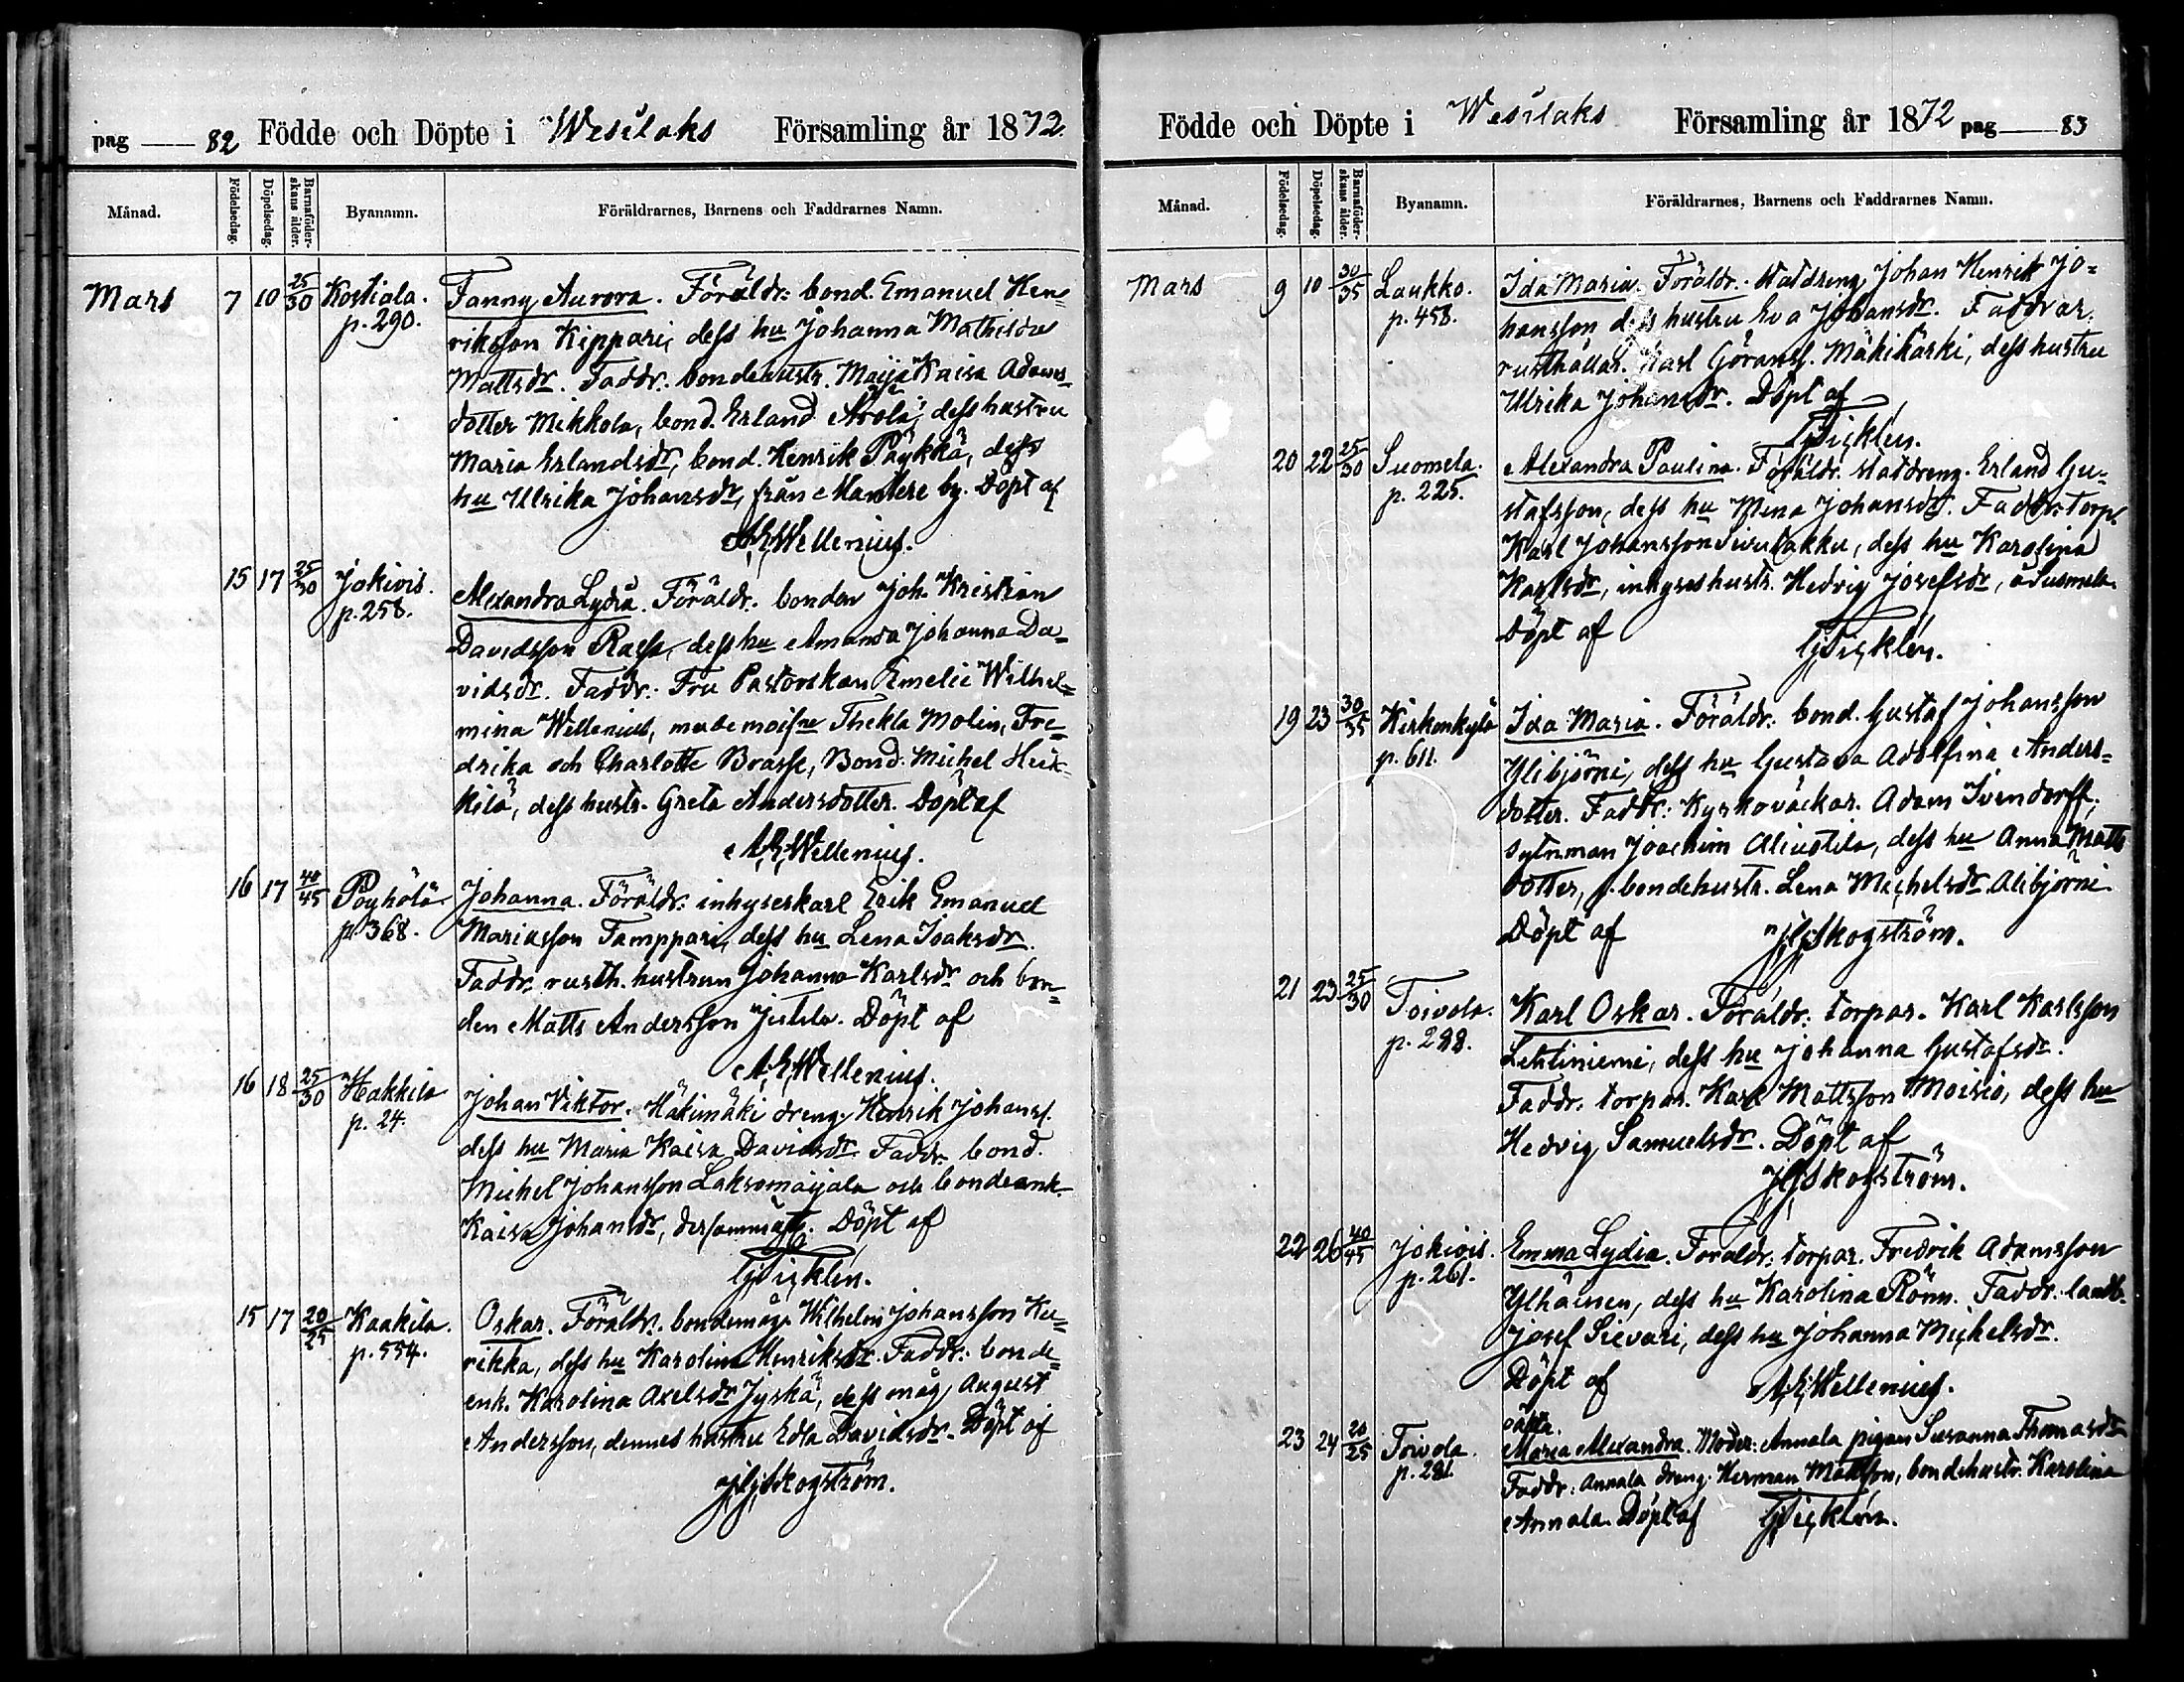 pag 82 Födde och Döpte i Wesilaks Församling år 1872.
Månad. Födelsedag. Döpelsedag. Barnaföderskans ålder. Byanamn. Föräldrarnes, Barnens och Faddrarnes Namn.
Mars 7 10 25/30 Kostiala. Fanny Aurora. Föräldr: bond. Emanuel Hen=
p. 290. riksson Kippari, dess hu Johanna Mathilda
Mattsdr. Faddr. bondehustr. Maija Kaisa Adams=
dotter Mikkola, bond. Erland Arola, dess hustru
Maria Erlandsdr, bond. Henrik Päykkä, dess
hu Ulrika Johansdr, från Mantere by. Döpt af
A E Wellenius.
15 17 25/30 Jokivis. Alexandra Lydia. Föräldr. bonden Joh. Kristian
p. 258. Davidsson Rassa, dess hu Amanda Johanna Da=
vidsdr. Faddr. Fru Pastorskan Emelie Wilhel=
mina Wellenius, Thekla Molin, Fre=
drika och Charlotte Brasse, Bond. Michel Heik=
kilä, dess hustr. Greta Andersdotter. Döpt af
A E Wellenius.
16 17 40/45 Pöyhölä. Johanna. Föräldr. inhyseskarl Erik Emanuel
p. 368. Mariasson Tamppari, dess hu Lena Isaksdr
Faddr. rusth. hustrun Johanna Karlsdr och bon=
den Matts Andersson Jutila. Döpt af
A E Wellenius.
16 18 25/30 Hakkila Johan Viktor. Häkimäki dreng Henrik Johanss.
p. 24. dess hu Maria Kaisa Davidsdr. Faddr. bond.
Michel Johansson Laksomaijala och bondeenk.
Kaisa Johansdr, dersammast. Döpt af
G Ticklén.
15 17 20/25 Kaakila. Oskar. Föräldr. bondemåg Wilhelm Johansson Ku=
p. 554. rikka, dess hu Karolina Henriksdr. Faddr: bonde=
enk. Karolina Axelsdr Jyskä, dess måg August
Andersson, dennes hustru Edla Davidsdr. Döpt af
Skogström.
Födde och Döpte i Wesilaks Församling år 1872 pag 83
Månad. Födelsedag. Döpelsedag. Barnaföderskans ålder. Byanamn. Föräldrarnes, Barnens och Faddrarnes Namn.
Mars 9 10 30/35 Laukko. Ida Maria. Föräldr. Statdreng Johan Henrik Jo=
p. 458. hansson dess hustru Eva Johansdr. Faddrar.
rusthållar. Karl Göranss. Mäkikärki, dess hustru
Ulrika Johansdr. Döpt af
G Ticklén.
20 22 25/30 Suomela. Alexandra Paulina. Föräldr. statdreng. Erland Gu=
p. 225. stafsson, dess hu Mina Johansdr. Faddr. torp.
Karl Johansson, dess hu Karolina
Karlsdr, inhyseshustr. Hedvig Josefsdr, å Suomela.
Döpt af G Ticklén.
19 23 30/35 Kirkonkylä Ida Maria. Föräldr. bond. Gustaf Johansson
p. 611. Ylibjörni, dess hu Gustava Adolfina Anders=
dotter. Faddr: Kyrkoväckar. Adam Ivendorff,
sytn.man Joachim Aliuotila, dess hu Anna Matts
dotter, f. bondehustr. Lena Michelsdr Alibjörni
Döpt af Skogström.
21 23 25/30 Toivola. Karl Oskar. Föräldr: torpar. Karl Karlsson
p. 288. Lehtiniemi, dess hu Johanna Gustafsdr.
Faddr. torpar. Karl Mattsson Moisio, dess hu
Hedvig Samuelsdr. Döpt af
Skogström.
22 26 40/45 Jokivis. Emma Lydia. Föraldr. torpar. Fredrik Adamsson
p. 261. Ylhäinen, dess hu Karolina Rönn. Faddr. landb.
Josef Sievari, dess hu Johanna Mickelsdr.
Döpt af A E Wellenius.
oäkta.
23 24 20/25 Toivola Maria Alexandra. Moder: Annala pigan Susanna Thomasdr
p. 281. Faddr: Annala dreng. Herman Mattsson, bondehustr. Karolina
Annala. Döpt af G Ticklén.